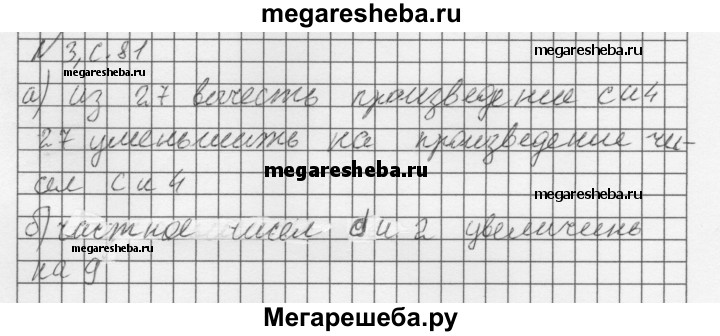 megaresheba.ru
N 3, с. 81
megaresheba.ru
megaresheba.ru
а) из 27 вычесть произведение c и 4
27 уменьшить на произведение чи-
megaresheba.ru
сел c и 4
megaresheba.ru
б) частное чисел d и 2 увеличить
megaresheba.ru
на 9
megaresheba.ru
Мегарешеба.ру